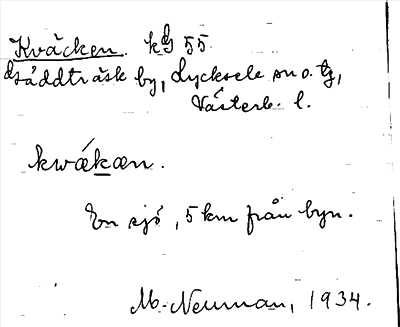 Kväcken. kg 55
Såddträsk by, Lycksele sn o. tg,
Västerb. l.
kwækæn.
En sjö, 5 km från byn.
M. Neuman, 1934.